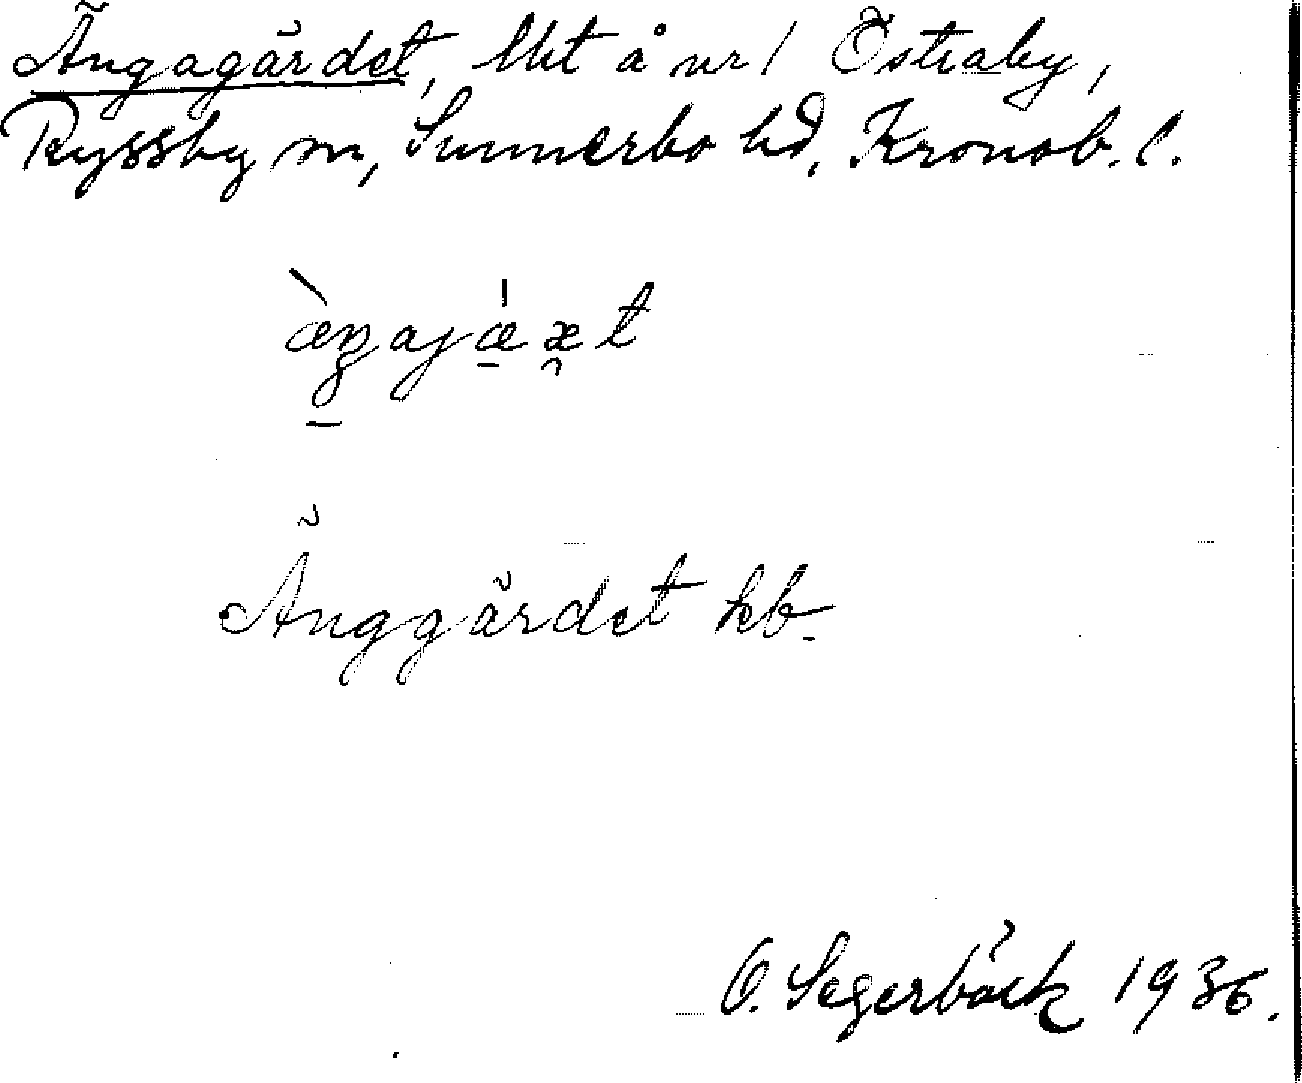 Ängagärdet, lht å nr 1 Östraby,
Ryssby sn, Sunnerbo hd, Kronob. l.
Änggärdet kb.
O. Segerbäck 1936.